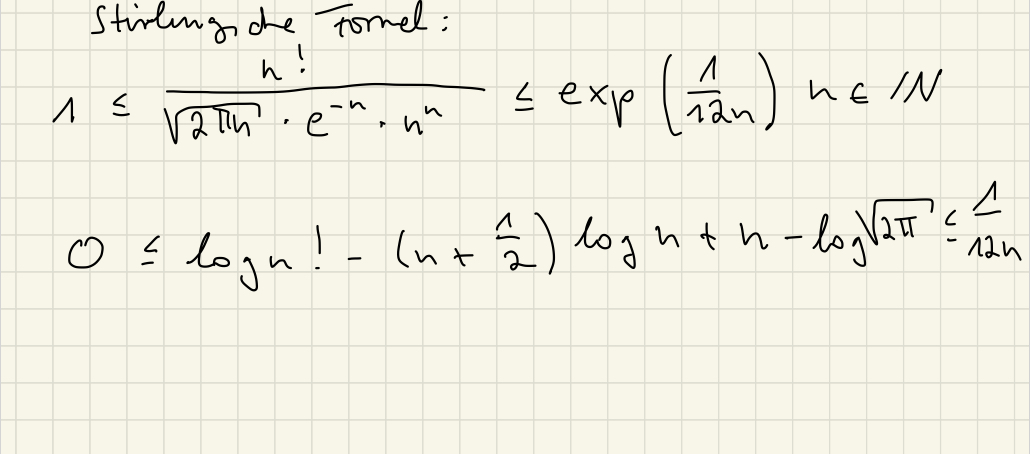 Stirlingsche Formel:
1 ≤ n! / (√(2πn) · e^(-n) · n^n) ≤ exp(1/(12n)) n ∈ ℕ
0 ≤ log n! - (n + 1/2) log n + n - log √(2π) ≤ 1/(12n)